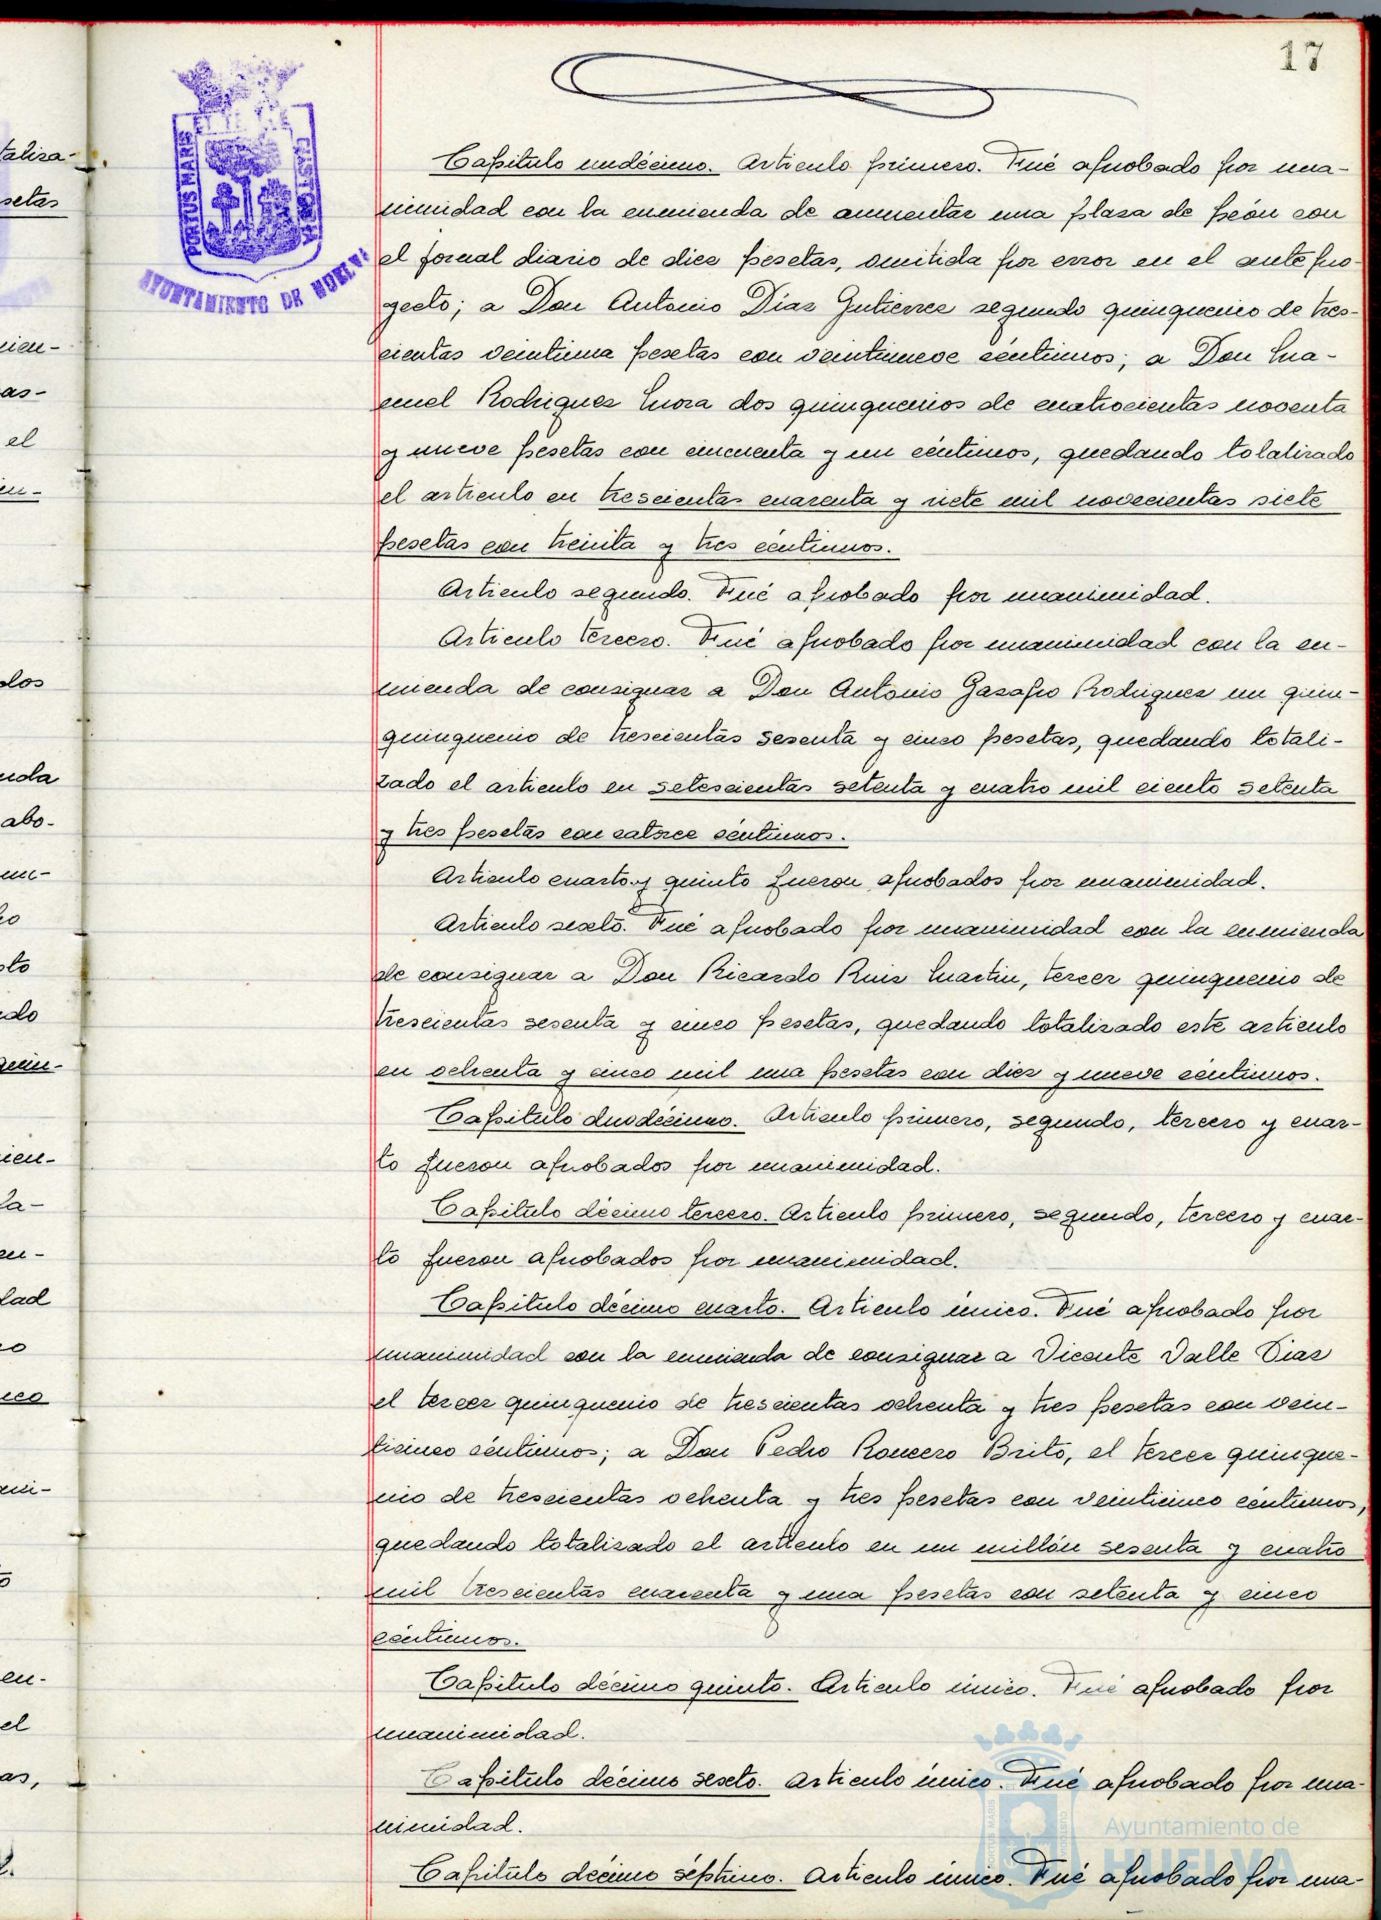 17
PORTUS MARIS
ET TERRE
CUSTODIA
AYUNTAMIENTO DE HUELVA
Capitulo undécimo. Articulo primero. Fué aprobado por una-
nimidad con la enmienda de aumentar una plaza de peón con
el jornal diario de diez pesetas, omitida por error en el antepro-
yecto; a Don Antonio Diaz Gutierrez segundo quinquenio de tres-
cientas veintiuna pesetas con veintinueve céntimos; a Don Ma-
nuel Rodriguez Mora dos quinquenios de cuatrocientas noventa
y nueve pesetas con cincuenta y un céntimos, quedando totalizado
el articulo en trescientas cuarenta y siete mil novecientas siete
pesetas con treinta y tres céntimos.
Articulo segundo. Fué aprobado por unanimidad.
Articulo tercero. Fué aprobado por unanimidad con la en-
mienda de consignar a Don Antonio Gazapo Rodriguez un quin-
quinquenio de trescientas sesenta y cinco pesetas, quedando totali-
zado el articulo en setescientas setenta y cuatro mil ciento setenta
y tres pesetas con catorce céntimos.
Articulo cuarto y quinto fueron aprobados por unanimidad.
Articulo sexto. Fué aprobado por unanimidad con la enmienda
de consignar a Don Ricardo Ruiz Martin, tercer quinquenio de
trescientas sesenta y cinco pesetas, quedando totalizado este articulo
en ochenta y cinco mil una pesetas con diez y nueve céntimos.
Capitulo duodécimo. Articulo primero, segundo, tercero y cuar-
to fueron aprobados por unanimidad.
Capitulo décimo tercero. Articulo primero, segundo, tercero y cuar-
to fueron aprobados por unanimidad.
Capitulo décimo cuarto. Articulo único. Fué aprobado por
unanimidad con la enmienda de consignar a Vicente Valle Diaz
el tercer quinquenio de trescientas ochenta y tres pesetas con vein-
ticinco céntimos; a Don Pedro Romero Brito, el tercer quinque-
nio de trescientas ochenta y tres pesetas con veinticinco céntimos,
quedando totalizado el articulo en un millón sesenta y cuatro
mil trescientas cuarenta y una pesetas con setenta y cinco
céntimos.
Capitulo décimo quinto. Articulo único. Fué aprobado por
unanimidad.
Capitulo décimo sexto. Articulo único. Fué aprobado por una-
nimidad.
Capitulo décimo séptimo. Articulo único. Fué aprobado por una-
Ayuntamiento de
HUELVA